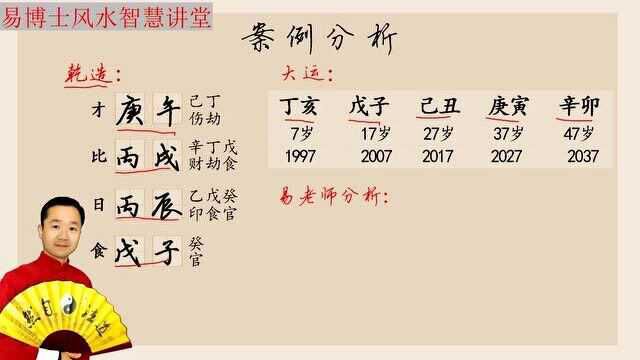 易博士风水智慧讲堂
案例分析
乾造：
才 庚午 己丁
伤劫
比 丙戌 辛丁戊
财劫食
日 丙辰 乙戊癸
印食官
食 戊子 癸
官
大运：
丁亥 戊子 己丑 庚寅 辛卯
7岁 17岁 27岁 37岁 47岁
1997 2007 2017 2027 2037
易老师分析：
道法自然